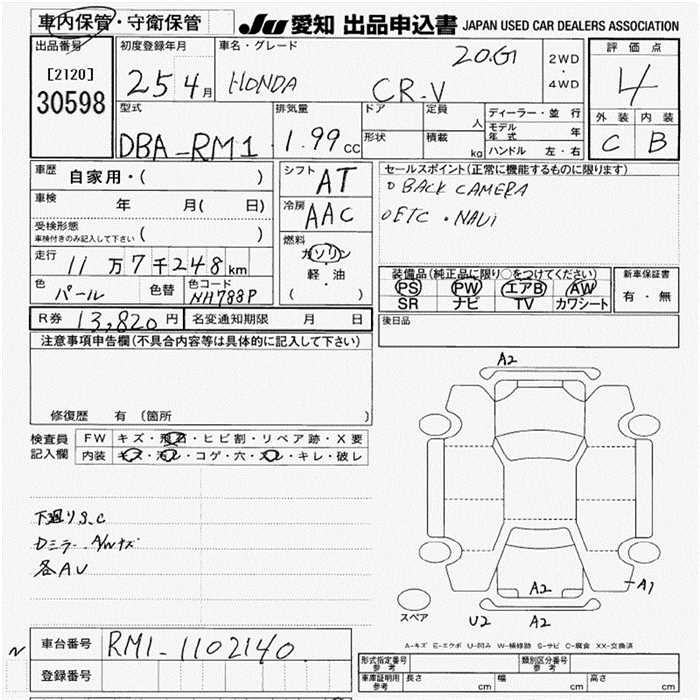 車内保管・守衛保管
JU 愛知 出品申込書 JAPAN USED CAR DEALERS ASSOCIATION
出品番号
[2120]
30598
初度登録年月
25 4月
車名・グレード
HONDA CR-V 20.G
2WD
・
4WD
評価点
4
外装 内装
C B
型式
DBA-RM1
排気量
1.99 CC
ドア
形状
定員 人
積載 kg
ディーラー・並 行
モデル年式 年
ハンドル 左・右
車歴 自家用・( )
車検 年 月( 日)
受検形態
車検付きのみ記入して下さい ( )
走行 11万7千248km
色 パール
色替
色コード
NH788P
シフト AT
冷房 AAC
燃料
ガソリン
軽・油
( )
セールスポイント(正常に機能するものに限ります)
○BACK CAMERA
○ETC・NAVi
装備品(純正品に限り○をつけてください)
PS PW エアB AW
SR ナビ TV カワシート
新車保証書
有・無
R券 13,820円
名変通知期限 月 日
後日品
注意事項申告欄(不具合内容等は具体的に記入して下さい)
修復歴 有(箇所
検査員 FW キズ・飛石・ヒビ割・リペア跡・X要
記入欄 内装 キズ・汚レ・コゲ・穴・スレ・キレ・破レ
下廻りS.C
Dミラー A/Wキズ
各AU
A2
A2
A1
スペア
U2 A2
A-キズ E-エクボ U-凹み W-補修跡 S-サビ C-腐食 XX-交換済
N
車台番号 RM1-1102140
登録番号
形式指定番号
参考
類別区分番号
参考
車庫証明用
参考
長さ cm 幅 cm 高さ cm